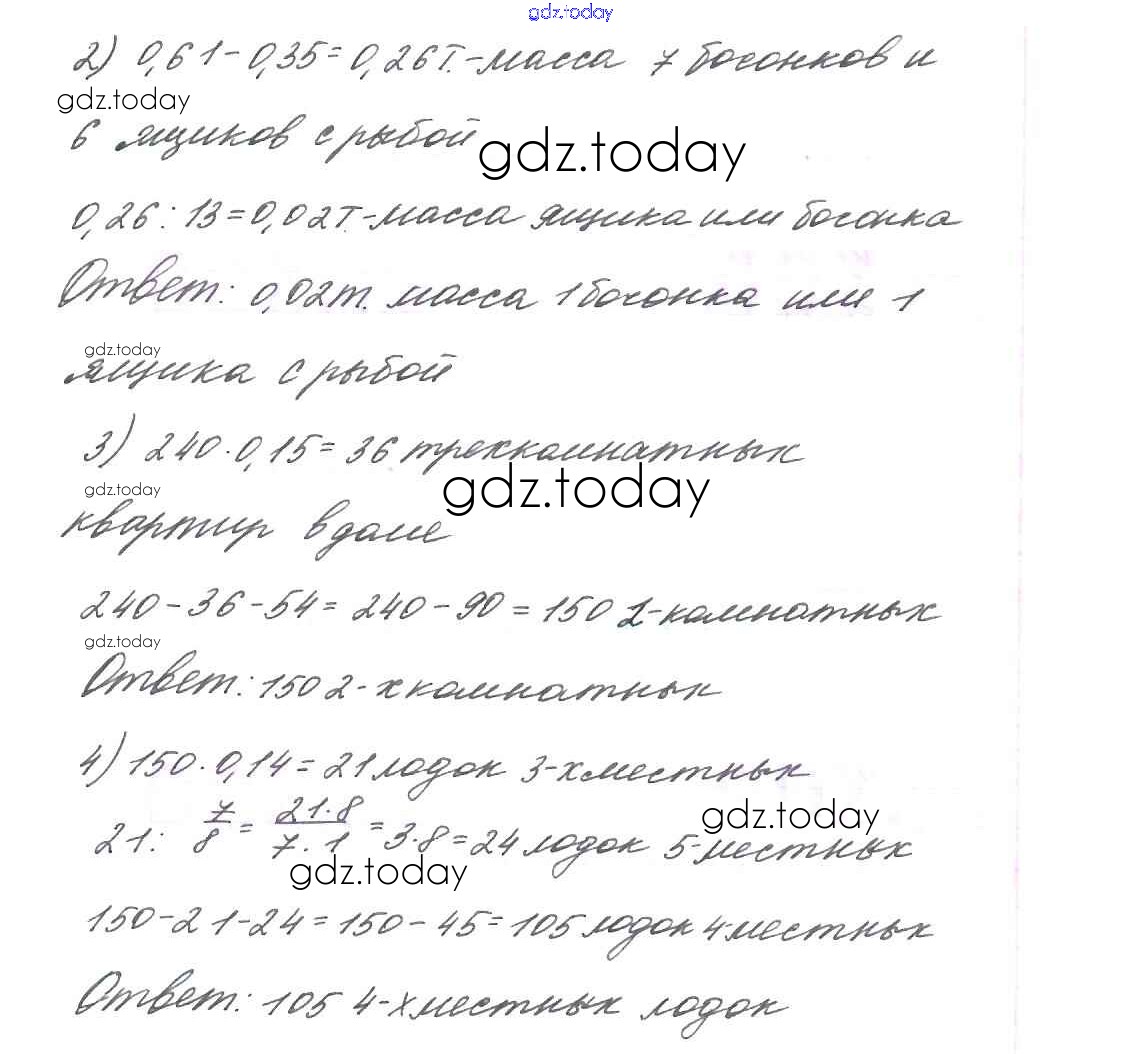 gdz.today
2) 0,61-0,35=0,26т.-масса 7 бочонков и
gdz.today
6 ящиков с рыбой
gdz.today
0,26:13=0,02т.-масса ящика или бочонка
Ответ: 0,02т. масса 1 бочонка или 1
gdz.today
ящика с рыбой
3) 240·0,15=36 трехкомнатных
gdz.today
gdz.today
квартир в доме
240-36-54=240-90=150 2-комнатных
gdz.today
Ответ: 150 2-х комнатных
4) 150·0,14=21 лодок 3-х местных
gdz.today
21: 7/8 = 21·8/7·1 = 3·8=24 лодок 5-местных
gdz.today
150-21-24=150-45=105 лодок 4 местных
Ответ: 105 4-х местных лодок